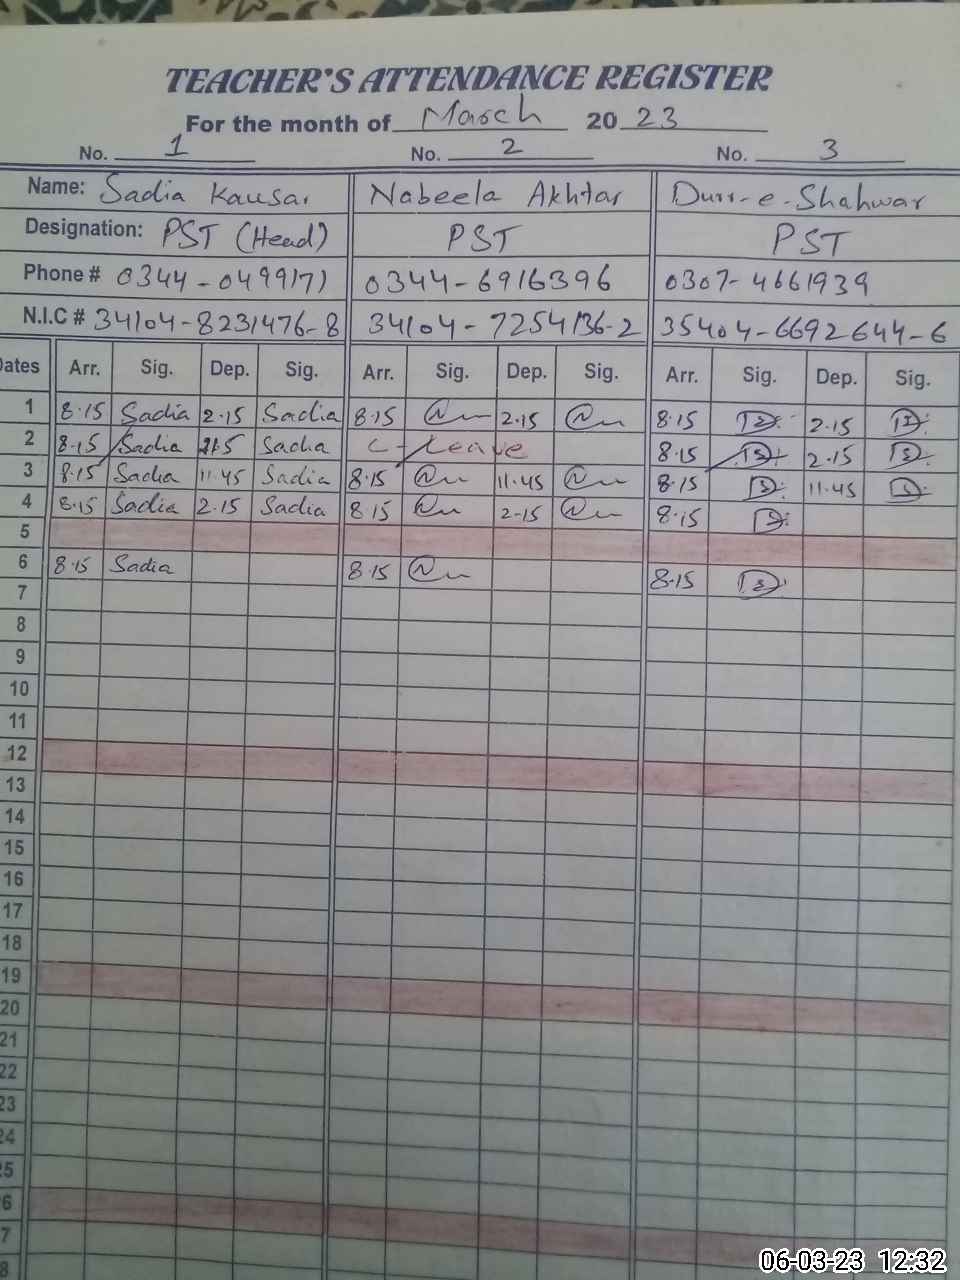 TEACHER'S ATTENDANCE REGISTER
For the month of March 2023
No. 1 No. 2 No. 3
Name: Sadia Kausar Nabeela Akhtar Durr-e-Shahwar
Designation: PST (Head) PST PST
Phone # 0344-0499171 0344-6916396 0307-4661939
N.I.C # 34104-8231476-8 34104-7254136-2 35404-6692644-6
Dates Arr. Sig. Dep. Sig. Arr. Sig. Dep. Sig. Arr. Sig. Dep. Sig.
1 8.15 Sadia 2.15 Sadia 8.15 2.15 8.15 2.15
2 8.15 Sadia Sadia C-Leave 8.15 2.15
3 8.15 Sadia 11.45 Sadia 8.15 11.45 8.15 11.45
4 8.15 Sadia 2.15 Sadia 8.15 2.15 8.15
5
6 8.15 Sadia 8.15 8.15
7
8
9
10
11
12
13
14
15
16
17
18
19
20
21
22
23
24
25
26
27
28
06-03-23 12:32